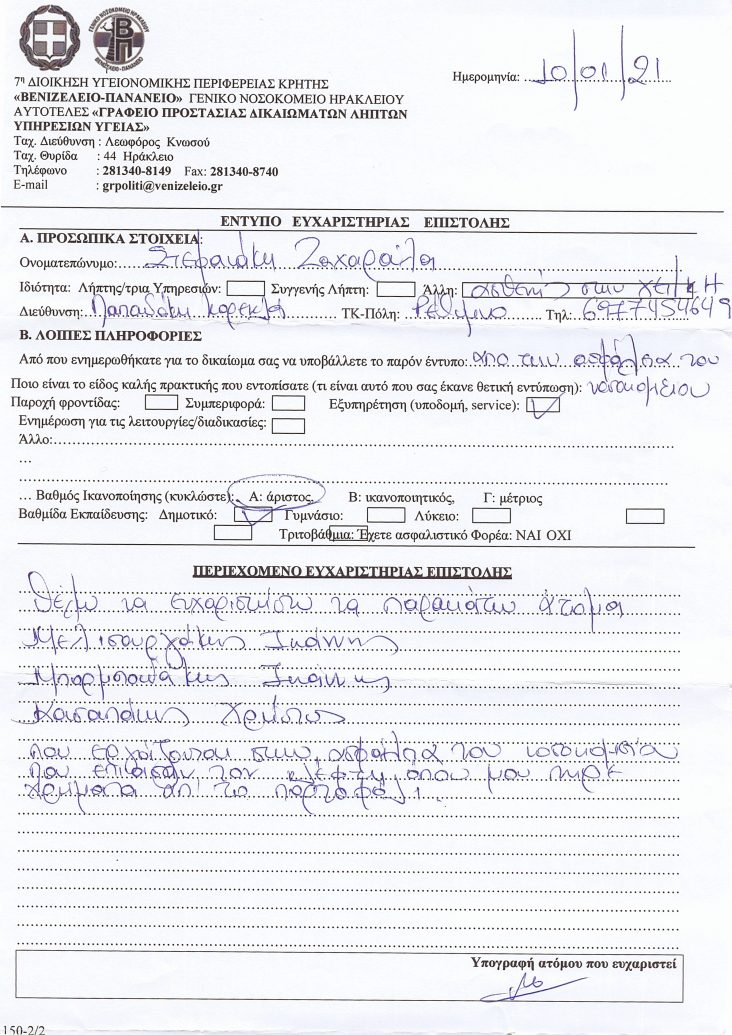 ΓΕΝΙΚΟ ΝΟΣΟΚΟΜΕΙΟ ΗΡΑΚΛΕΙΟΥ
ΒΕΝΙΖΕΛΕΙΟ-ΠΑΝΑΝΕΙΟ
Ημερομηνία: 10/01/21
7η ΔΙΟΙΚΗΣΗ ΥΓΕΙΟΝΟΜΙΚΗΣ ΠΕΡΙΦΕΡΕΙΑΣ ΚΡΗΤΗΣ
«ΒΕΝΙΖΕΛΕΙΟ-ΠΑΝΑΝΕΙΟ» ΓΕΝΙΚΟ ΝΟΣΟΚΟΜΕΙΟ ΗΡΑΚΛΕΙΟΥ
ΑΥΤΟΤΕΛΕΣ «ΓΡΑΦΕΙΟ ΠΡΟΣΤΑΣΙΑΣ ΔΙΚΑΙΩΜΑΤΩΝ ΛΗΠΤΩΝ
ΥΠΗΡΕΣΙΩΝ ΥΓΕΙΑΣ»
Ταχ. Διεύθυνση : Λεωφόρος Κνωσού
Ταχ. Θυρίδα : 44 Ηράκλειο
Τηλέφωνο : 281340-8149 Fax: 281340-8740
E-mail : grpoliti@venizeleio.gr
ΕΝΤΥΠΟ ΕΥΧΑΡΙΣΤΗΡΙΑΣ ΕΠΙΣΤΟΛΗΣ
Α. ΠΡΟΣΩΠΙΚΑ ΣΤΟΙΧΕΙΑ:
Ονοματεπώνυμο: Στεφανάκη
Ιδιότητα: Λήπτης/τρια Υπηρεσιών: Συγγενής Λήπτη: Άλλη: ασθενής στην
Διεύθυνση: Παπαδάκη ΤΚ-Πόλη: Ρέθυμνο Τηλ: 6977454649
Β. ΛΟΙΠΕΣ ΠΛΗΡΟΦΟΡΙΕΣ
Από που ενημερωθήκατε για το δικαίωμα σας να υποβάλλετε το παρόν έντυπο: απο την ασφάλεια του
Ποιο είναι το είδος καλής πρακτικής που εντοπίσατε (τι είναι αυτό που σας έκανε θετική εντύπωση): νοσοκομειου
Παροχή φροντίδας: Συμπεριφορά: Εξυπηρέτηση (υποδομή, service):
Ενημέρωση για τις λειτουργίες/διαδικασίες:
Άλλο:
...
... Βαθμός Ικανοποίησης (κυκλώστε): Α: άριστος, Β: ικανοποιητικός, Γ: μέτριος
Βαθμίδα Εκπαίδευσης: Δημοτικό: Γυμνάσιο: Λύκειο:
Τριτοβάθμια: Έχετε ασφαλιστικό Φορέα: ΝΑΙ ΟΧΙ
ΠΕΡΙΕΧΟΜΕΝΟ ΕΥΧΑΡΙΣΤΗΡΙΑΣ ΕΠΙΣΤΟΛΗΣ
Θέλω να ευχαριστήσω τα παρακάτω άτομα
Μελισουργάκης Ιωάννης
Μπαρμπουνάκης Ιωάννης
Κασαπάκης Χρήστος
που εργάζονται στην ασφάλεια του νοσοκομείου
που επιασαν τον κλέφτη οπου μου πηρε
χρήματα απ' το πορτοφόλι.
Υπογραφή ατόμου που ευχαριστεί
150-2/2